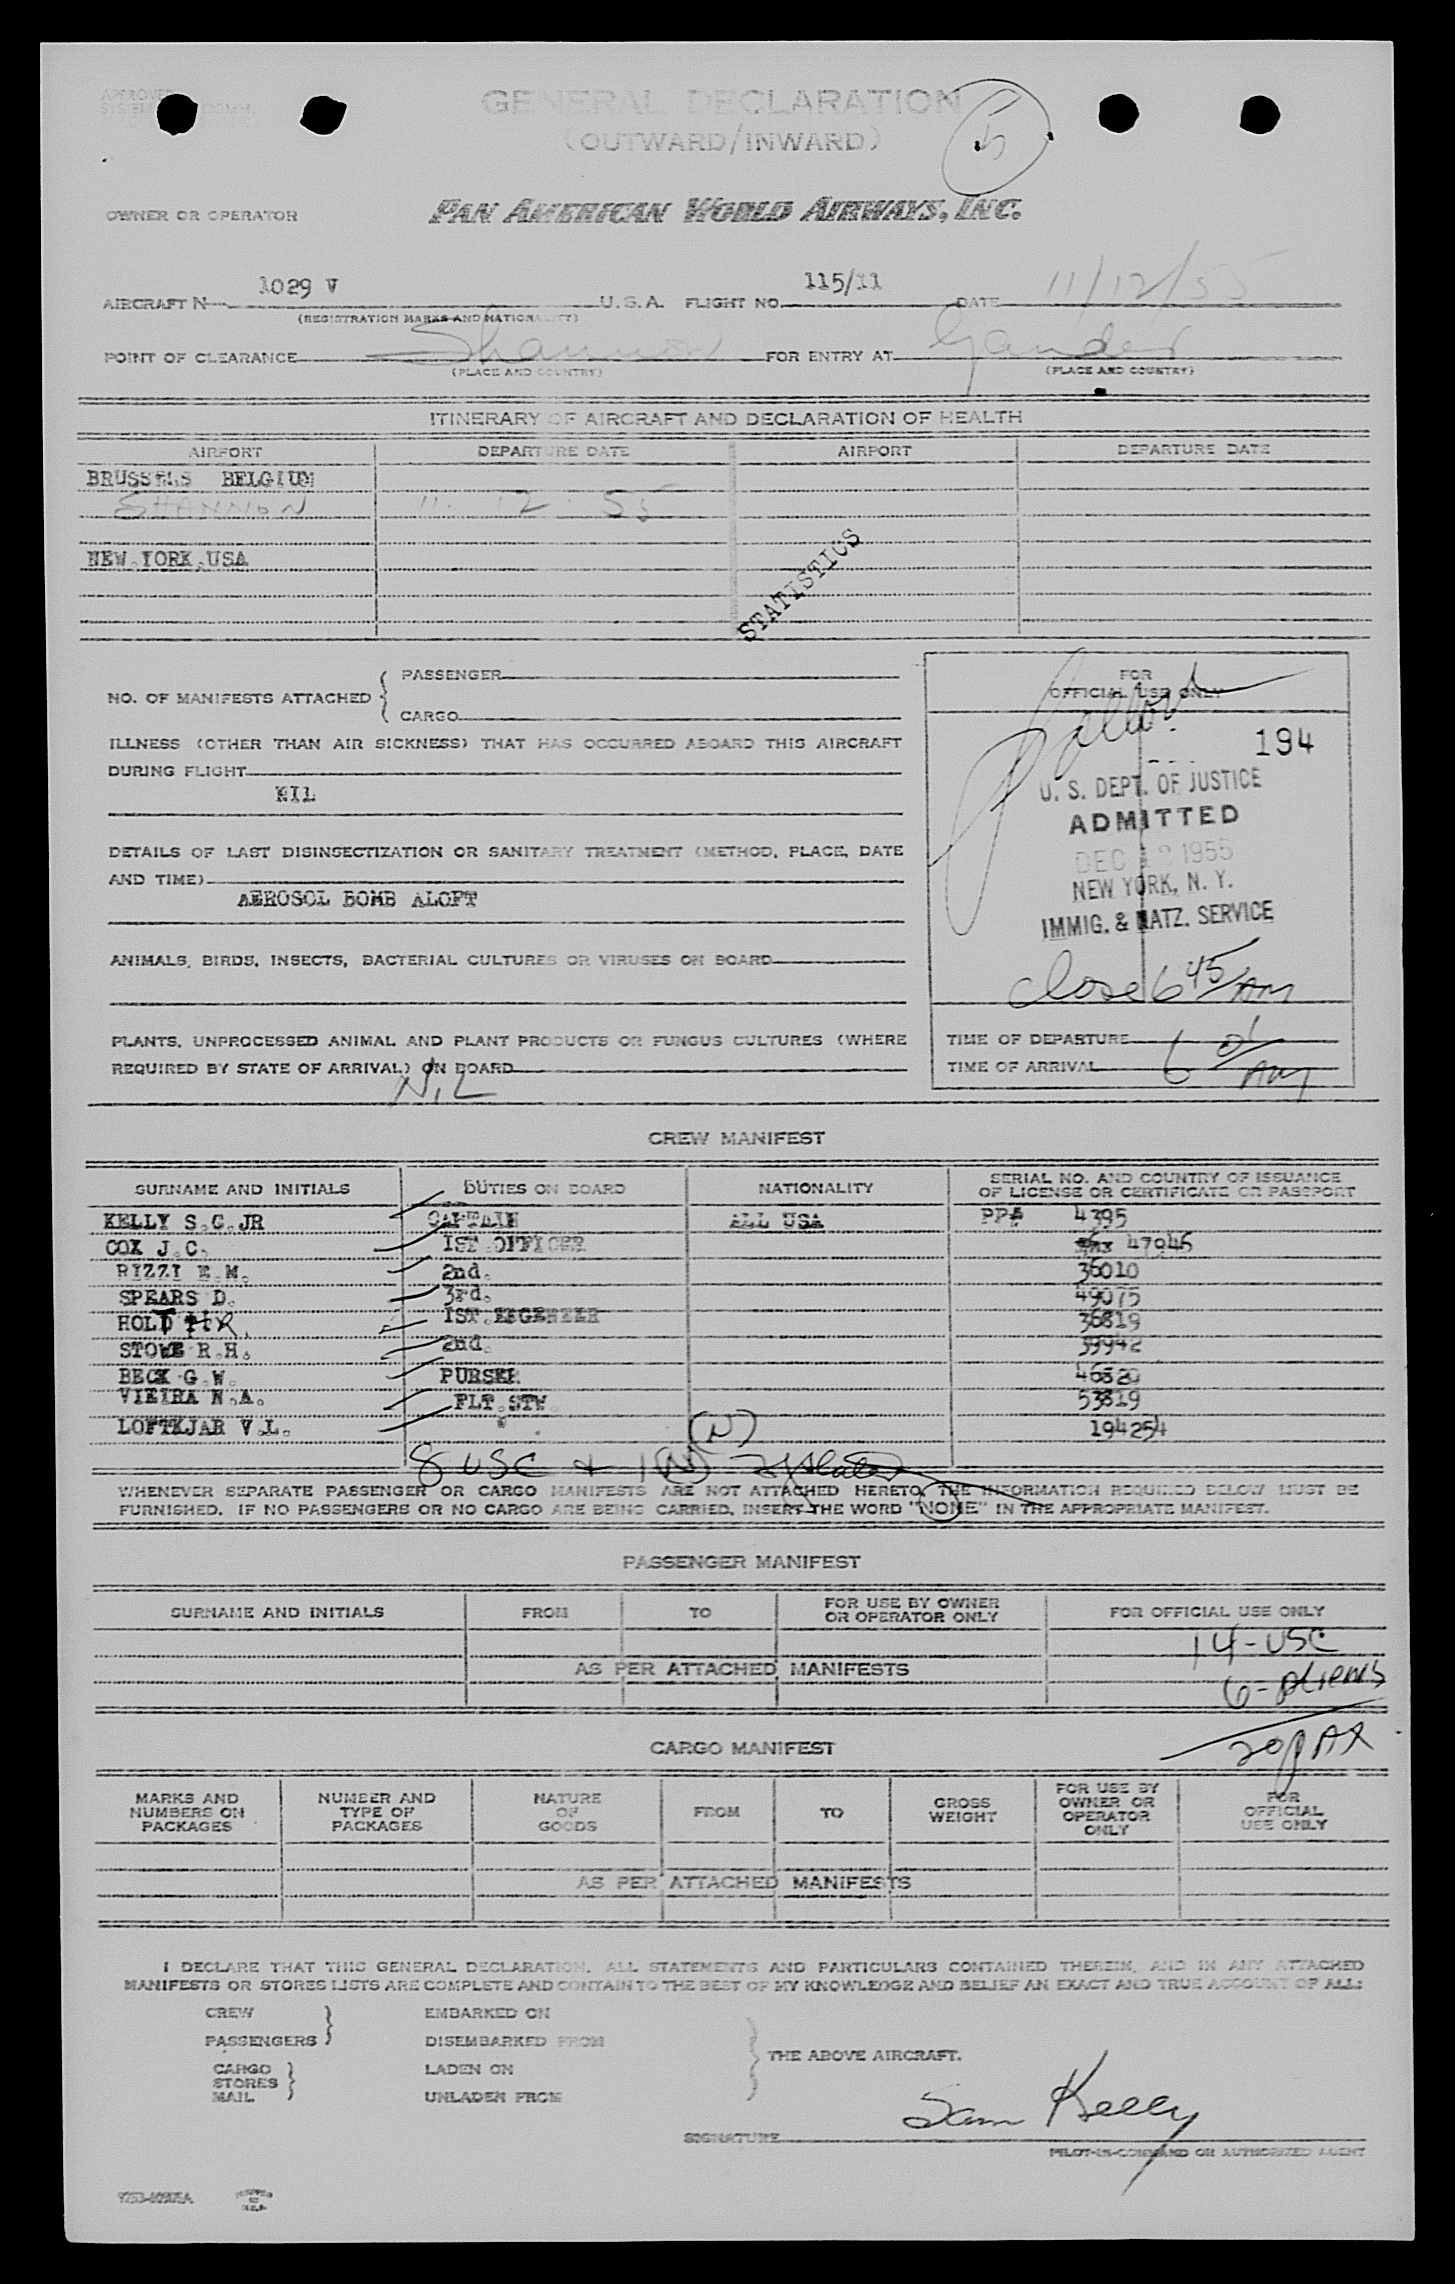 APPROVED
SYSTEMS COMM.
GENERAL DECLARATION
(OUTWARD/INWARD)
5
OWNER OR OPERATOR PAN AMERICAN WORLD AIRWAYS, INC.
AIRCRAFT N 1029 V U.S.A. FLIGHT NO. 115/11 DATE 11/12/55
(REGISTRATION MARKS AND NATIONALITY)
POINT OF CLEARANCE Shannon FOR ENTRY AT Gander
(PLACE AND COUNTRY) (PLACE AND COUNTRY)
ITINERARY OF AIRCRAFT AND DECLARATION OF HEALTH
AIRPORT DEPARTURE DATE AIRPORT DEPARTURE DATE
BRUSSELS BELGIUM
SHANNON 11. 12. 55
NEW YORK,USA
STATISTICS
NO. OF MANIFESTS ATTACHED
PASSENGER
CARGO
ILLNESS (OTHER THAN AIR SICKNESS) THAT HAS OCCURRED ABOARD THIS AIRCRAFT
DURING FLIGHT
NIL
DETAILS OF LAST DISINSECTIZATION OR SANITARY TREATMENT (METHOD, PLACE, DATE
AND TIME)
AEROSOL BOMB ALOFT
ANIMALS, BIRDS, INSECTS, BACTERIAL CULTURES OR VIRUSES ON BOARD
PLANTS, UNPROCESSED ANIMAL AND PLANT PRODUCTS OR FUNGUS CULTURES (WHERE
REQUIRED BY STATE OF ARRIVAL) ON BOARD
NIL
FOR
OFFICIAL USE ONLY
194
U. S. DEPT. OF JUSTICE
ADMITTED
DEC 12 1955
NEW YORK, N. Y.
IMMIG. & NATZ. SERVICE
close 6 45/AM
TIME OF DEPARTURE
TIME OF ARRIVAL 6 01/AM
CREW MANIFEST
SURNAME AND INITIALS DUTIES ON BOARD NATIONALITY SERIAL NO. AND COUNTRY OF ISSUANCE
OF LICENSE OR CERTIFICATE OR PASSPORT
KELLY S.C.JR CAPTAIN ALL USA PP# 4395
COX J.C. IST OFFICER 47046
RIZZI E.M. 2nd. 36010
SPEARS D. 3rd. 49075
HOLT HR. IST.ENGENEER 36819
STOWE R.H. 2nd. 39942
BECK G.W. PURSER 46820
VIEIRA N.A. FLT.STW. 53819
LOFTKJAR V.L. " 194254
(N)
8 USC + 1 (N)
WHENEVER SEPARATE PASSENGER OR CARGO MANIFESTS ARE NOT ATTACHED HERETO, THE INFORMATION REQUIRED BELOW MUST BE
FURNISHED. IF NO PASSENGERS OR NO CARGO ARE BEING CARRIED, INSERT THE WORD "NONE" IN THE APPROPRIATE MANIFEST.
PASSENGER MANIFEST
SURNAME AND INITIALS FROM TO FOR USE BY OWNER
OR OPERATOR ONLY FOR OFFICIAL USE ONLY
14-USC
AS PER ATTACHED MANIFESTS
6-Aliens
20 PAX
CARGO MANIFEST
MARKS AND
NUMBERS ON
PACKAGES
NUMBER AND
TYPE OF
PACKAGES
NATURE
OF
GOODS
FROM
TO
GROSS
WEIGHT
FOR USE BY
OWNER OR
OPERATOR
ONLY
FOR
OFFICIAL
USE ONLY
AS PER ATTACHED MANIFESTS
I DECLARE THAT THIS GENERAL DECLARATION, ALL STATEMENTS AND PARTICULARS CONTAINED THEREIN, AND IN ANY ATTACHED
MANIFESTS OR STORES LISTS ARE COMPLETE AND CONTAIN TO THE BEST OF MY KNOWLEDGE AND BELIEF AN EXACT AND TRUE ACCOUNT OF ALL:
CREW EMBARKED ON
PASSENGERS DISEMBARKED FROM
THE ABOVE AIRCRAFT.
CARGO LADEN ON
STORES
MAIL UNLADEN FROM
SIGNATURE Sam Kelly
PILOT-IN-COMMAND OR AUTHORIZED AGENT
PRINTED
IN
U.S.A.